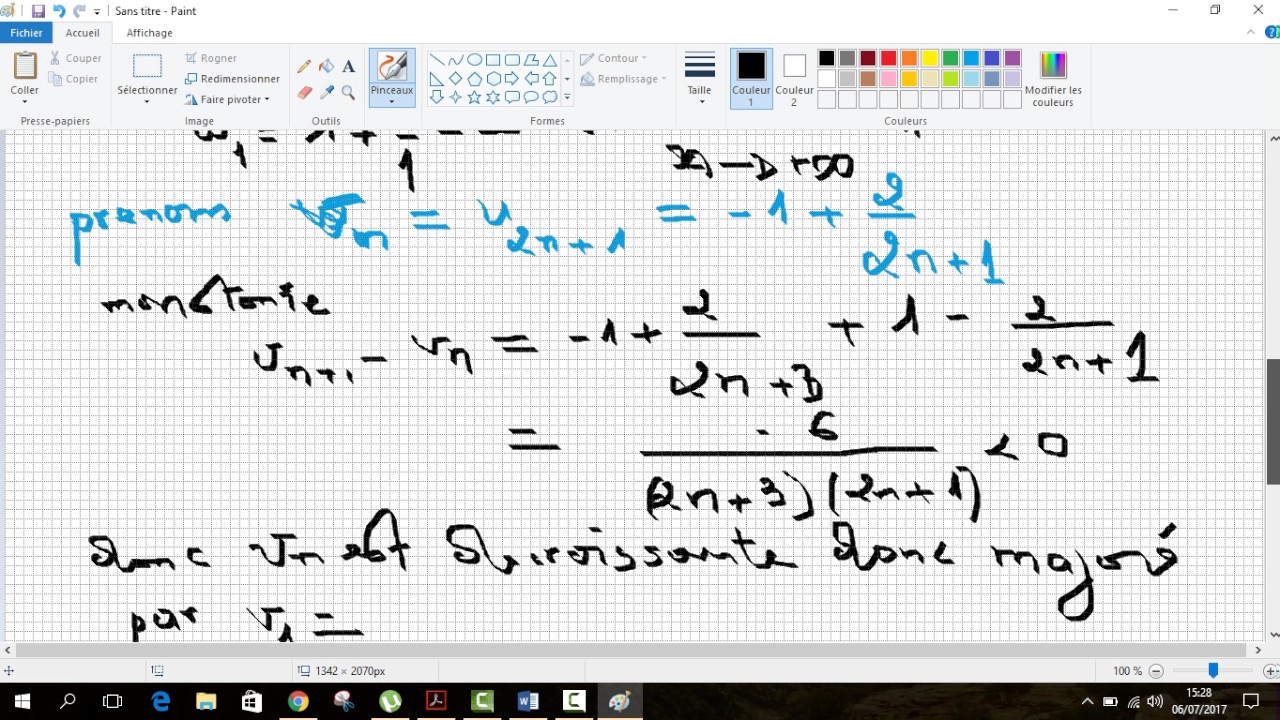 Sans titre - Paint
Fichier Accueil Affichage
Coller
Couper
Copier
Presse-papiers
Sélectionner
Rogner
Redimensionner
Faire pivoter
Image
Outils
Pinceaux
Contour
Remplissage
Formes
Taille
Couleur 1
Couleur 2
Modifier les couleurs
Couleurs
1 1
n → +∞
prenons v_n = u_{2n+1} = -1 + 2/(2n+1)
monotonie
v_{n+1} - v_n = -1 + 2/(2n+3) + 1 - 2/(2n+1)
= -6/((2n+3)(2n+1)) < 0
donc v_n est décroissante donc majoré
par v_1 =
1342 × 2070px
100 %
15:28
06/07/2017